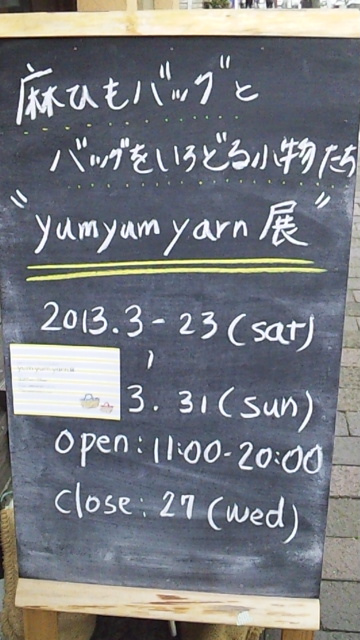 麻ひもバッグと
バッグをいろどる小物たち
"yumyum yarn 展"
2013.3-23(sat)
~
3.31(sun)
open:11:00-20:00
close:27(wed)